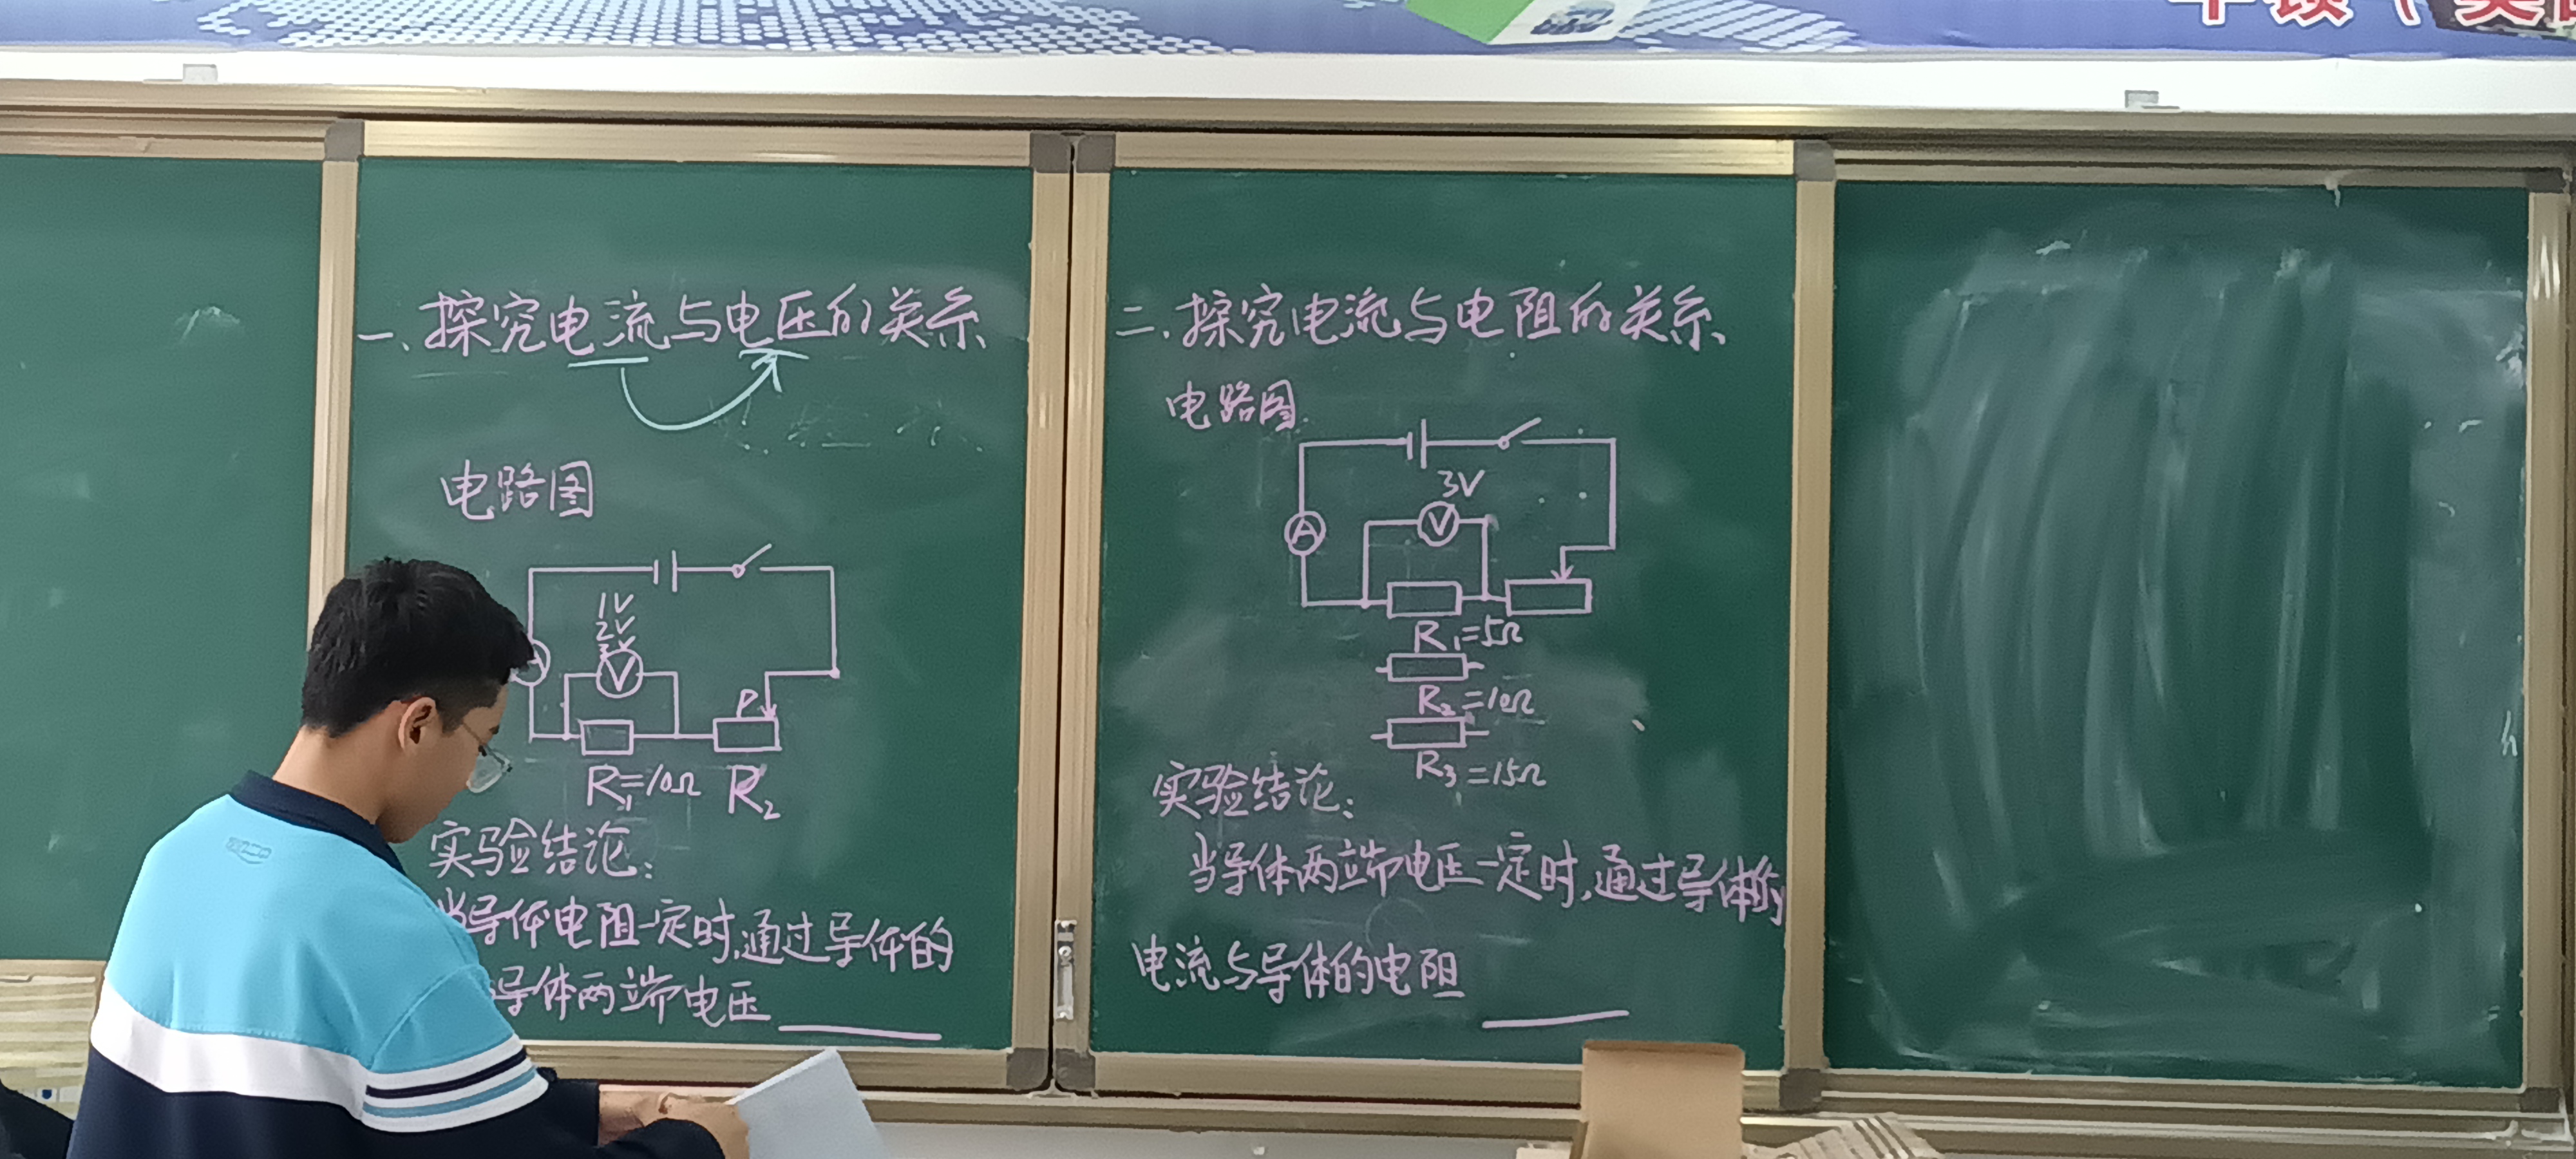 一、探究电流与电压的关系
电路图
1V
2V
V
P
R₁=10Ω R₂
实验结论:
当导体电阻一定时,通过导体的
导体两端电压
二、探究电流与电阻的关系
电路图
3V
A
V
R₁=5Ω
R₂=10Ω
R₃=15Ω
实验结论:
当导体两端电压一定时,通过导体的
电流与导体的电阻